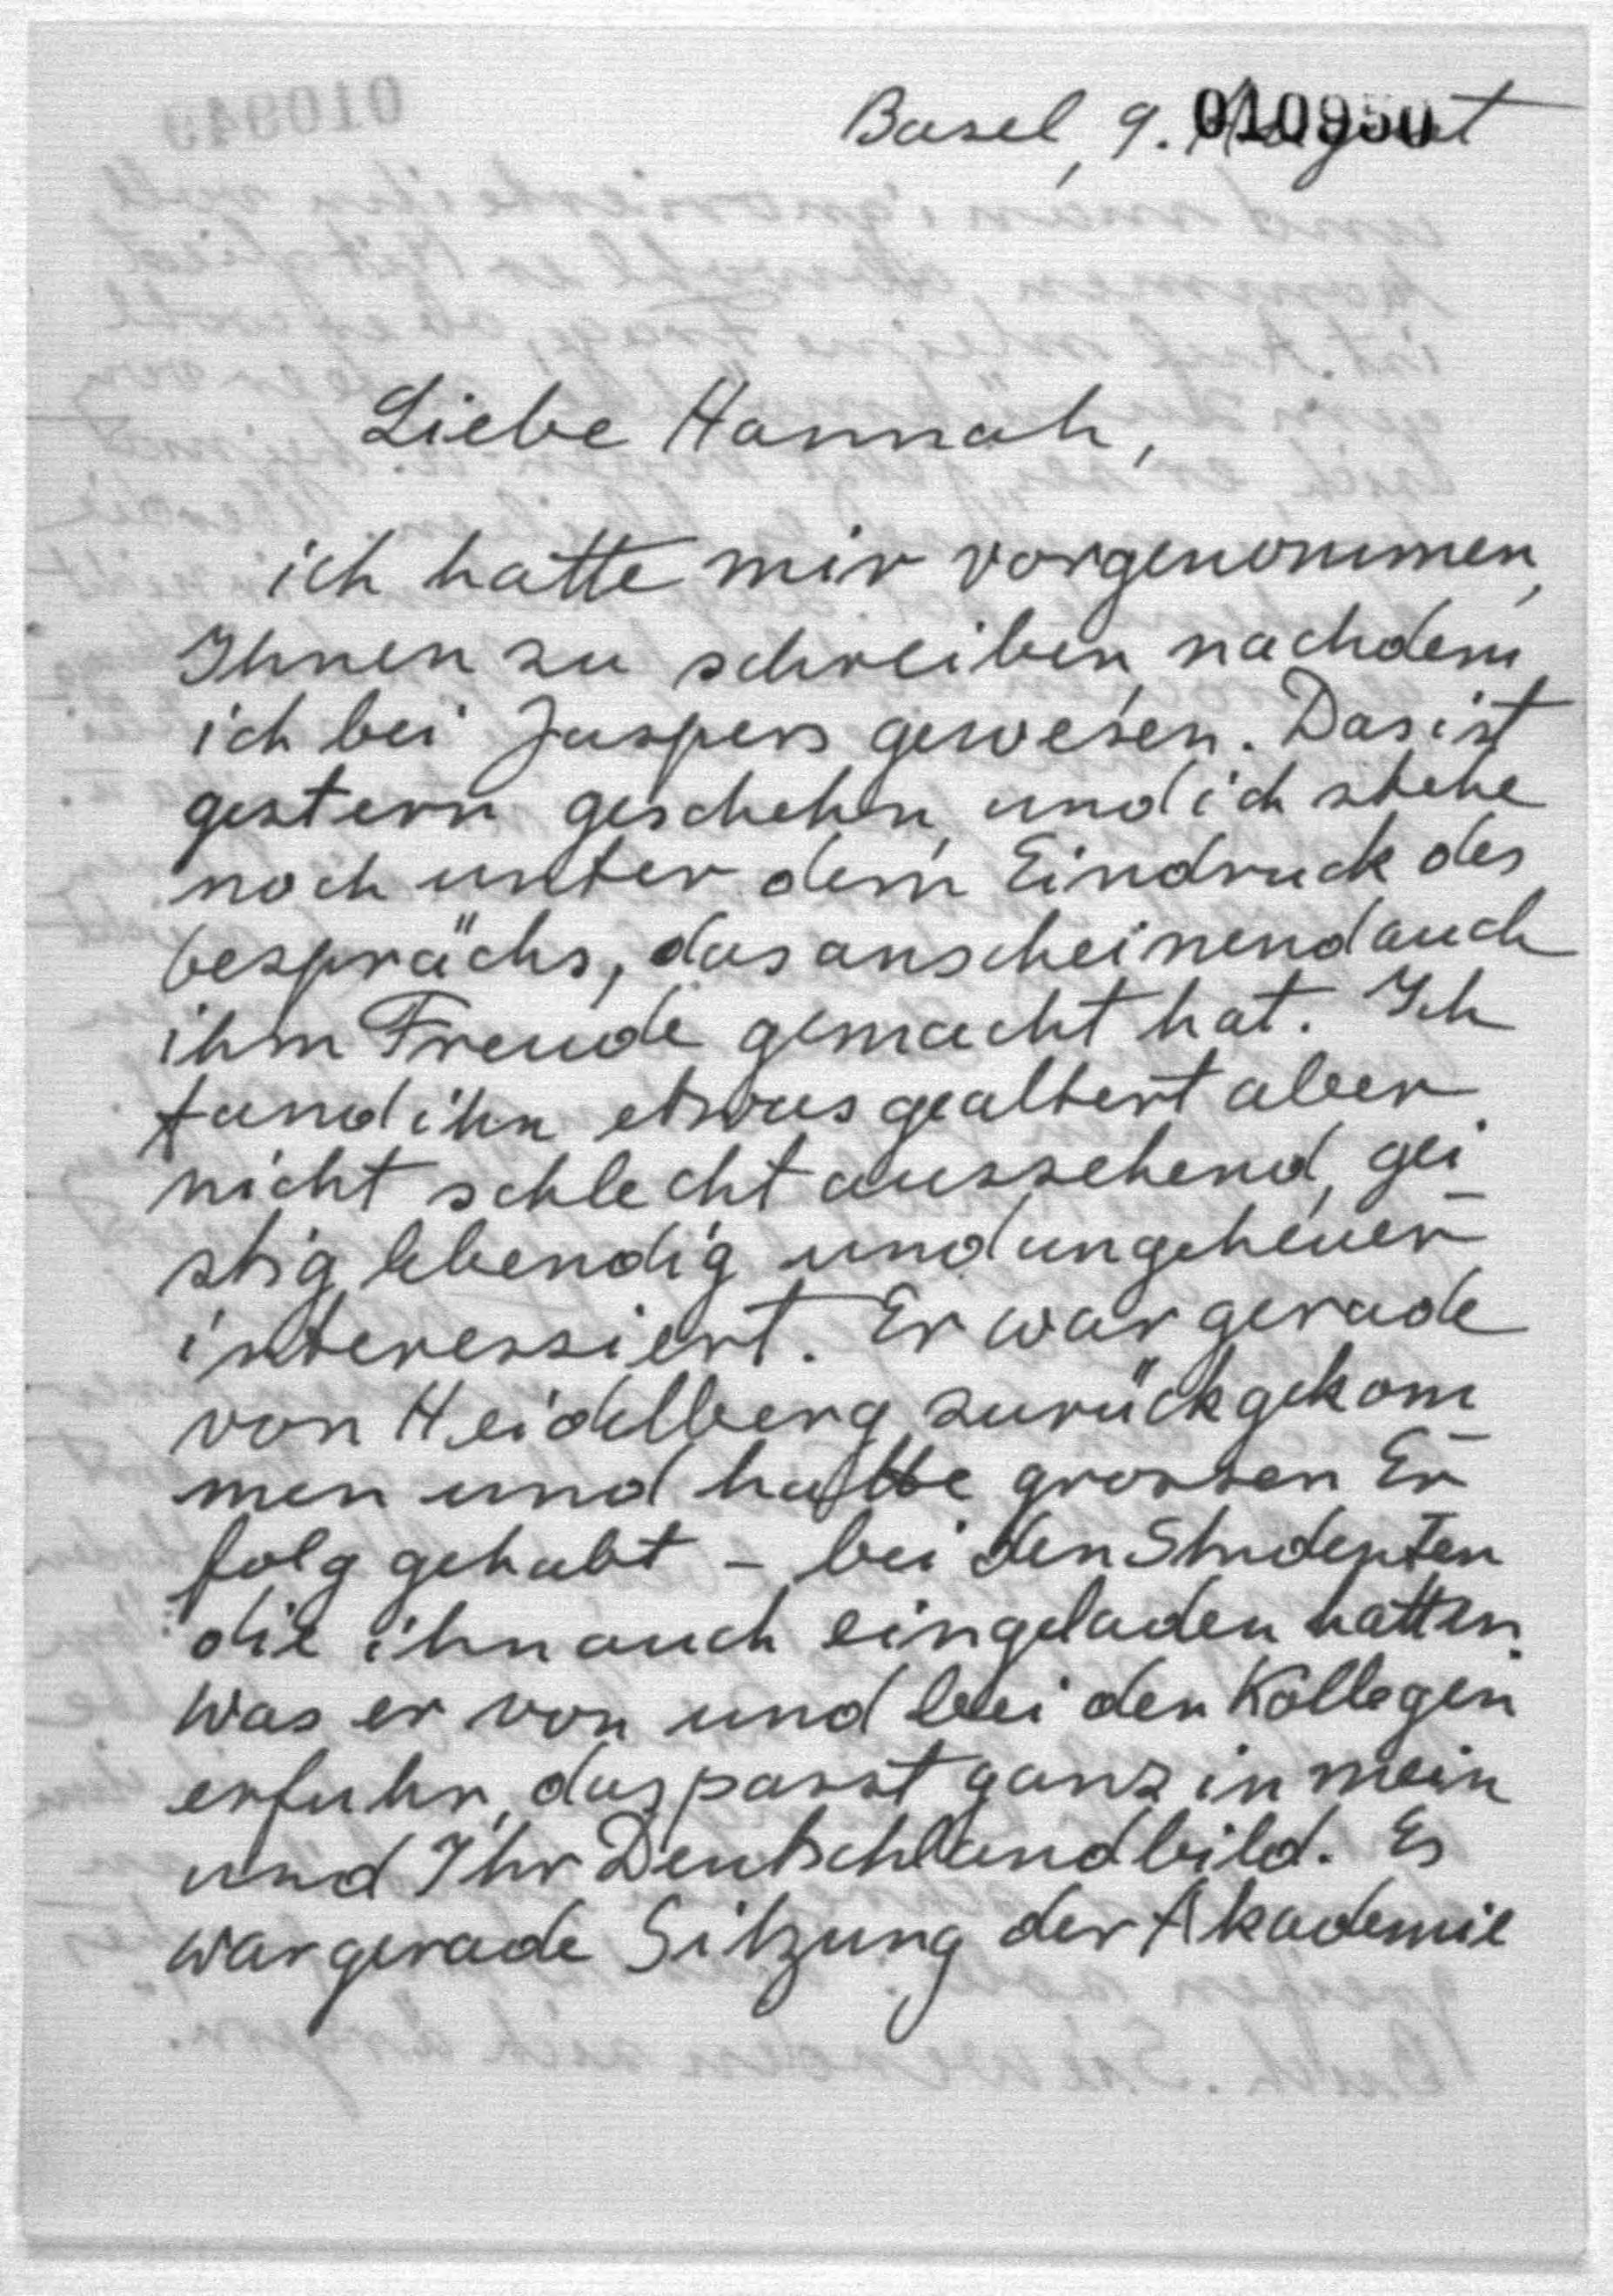 010950
Basel, 9. August
Liebe Hannah,
ich hatte mir vorgenommen,
Ihnen zu schreiben, nachdem
ich bei Jaspers gewesen. Das ist
gestern geschehn, und ich stehe
noch unter dem Eindruck des
Gesprächs, das anscheinend auch
ihm Freude gemacht hat. Ich
fand ihn etwas gealtert aber
nicht schlecht aussehend, gei-
stig lebendig und ungeheuer
interessiert. Er war gerade
von Heidelberg zurückgekom-
men und hatte grossen Er-
folg gehabt – bei den Studenten
die ihn auch eingeladen hatten.
Was er von und bei den Kollegen
erfuhr, das passt ganz in mein
und Ihr Deutschlandbild. Es
war gerade Sitzung der Akademie